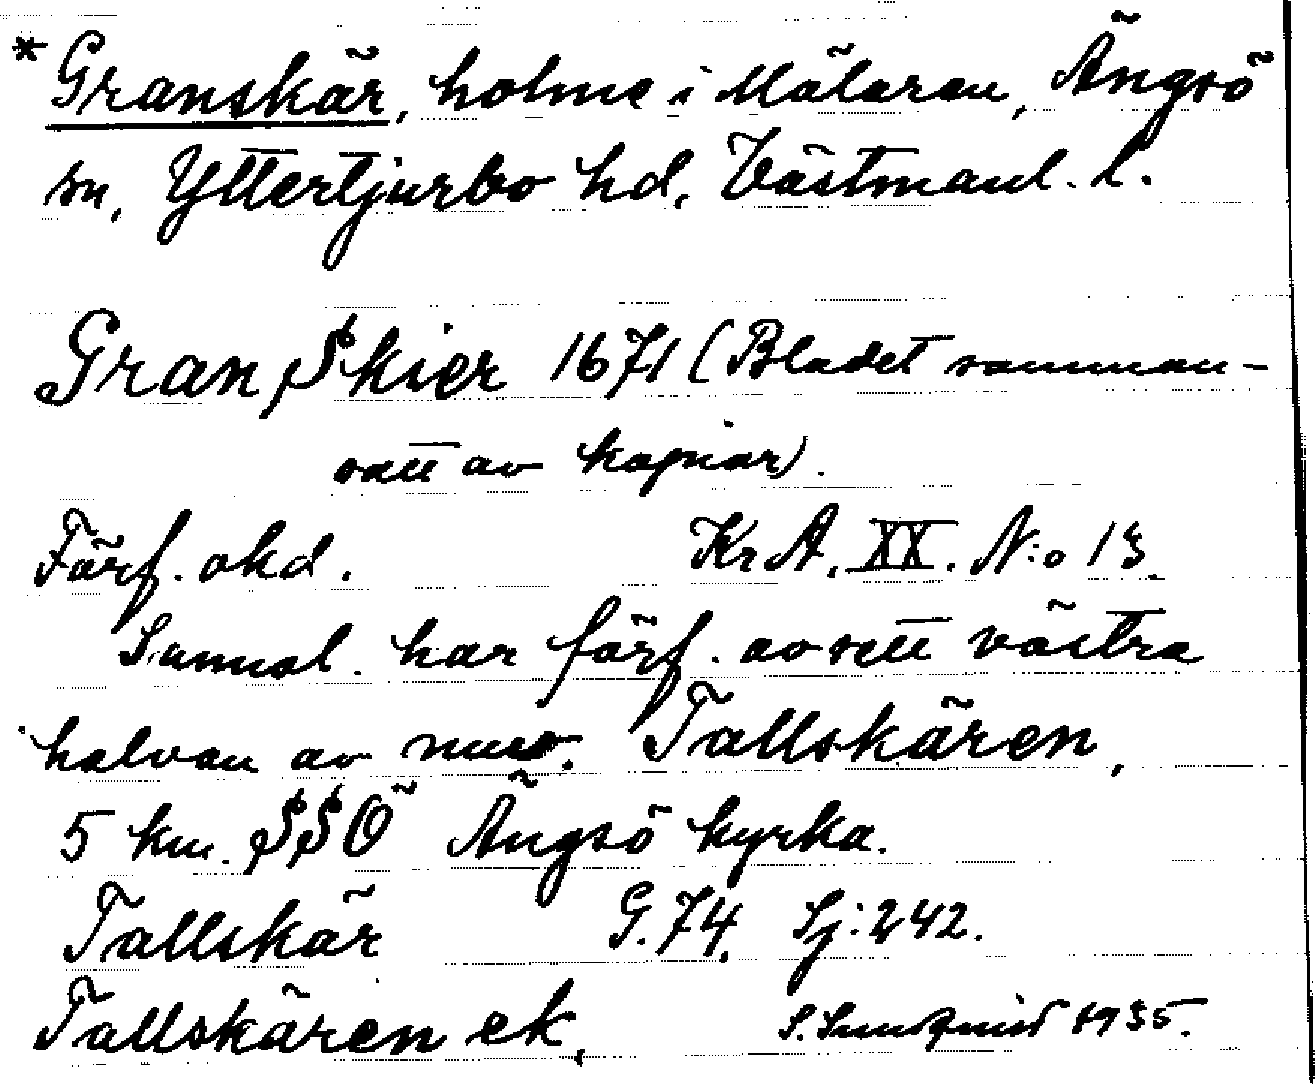 *Granskär, holme i Mälaren, Ängsö
sn, Yttertjurbo hd, Västmanl. l.
Gran Skier 1671 (Bladet samman-
satt av kopior).
Förf. okd. KrA. XX. N:o 13.
Sannol. har förf. avsett västra
halvan av nuv. Tallskären,
5 km. SSÖ Ängsö kyrka.
Tallskär G. 74. Sj: 242.
Tallskären ek.
S. Sundqvist 1935.